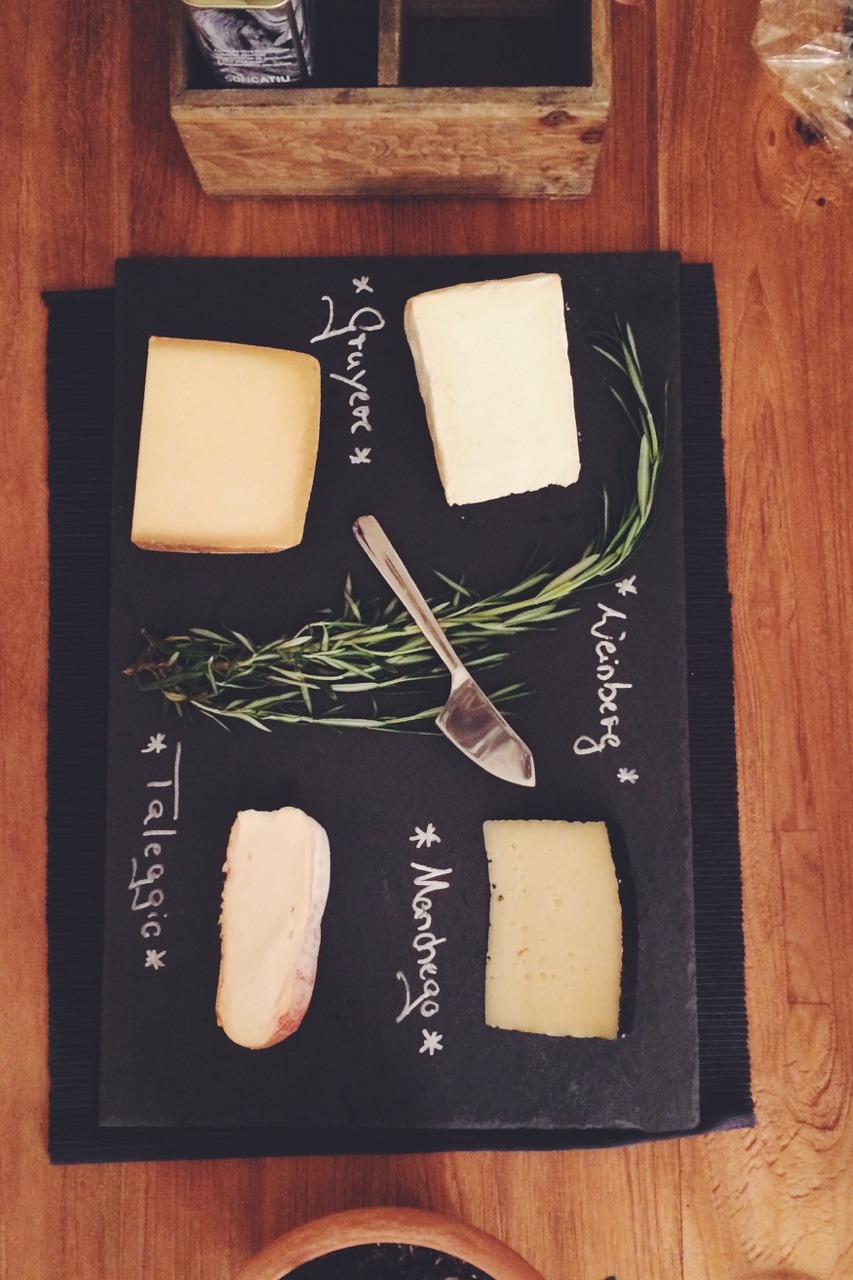 SONCATIU
* Gruyere *
* Weinberg *
* Taleggio *
* Manchego *